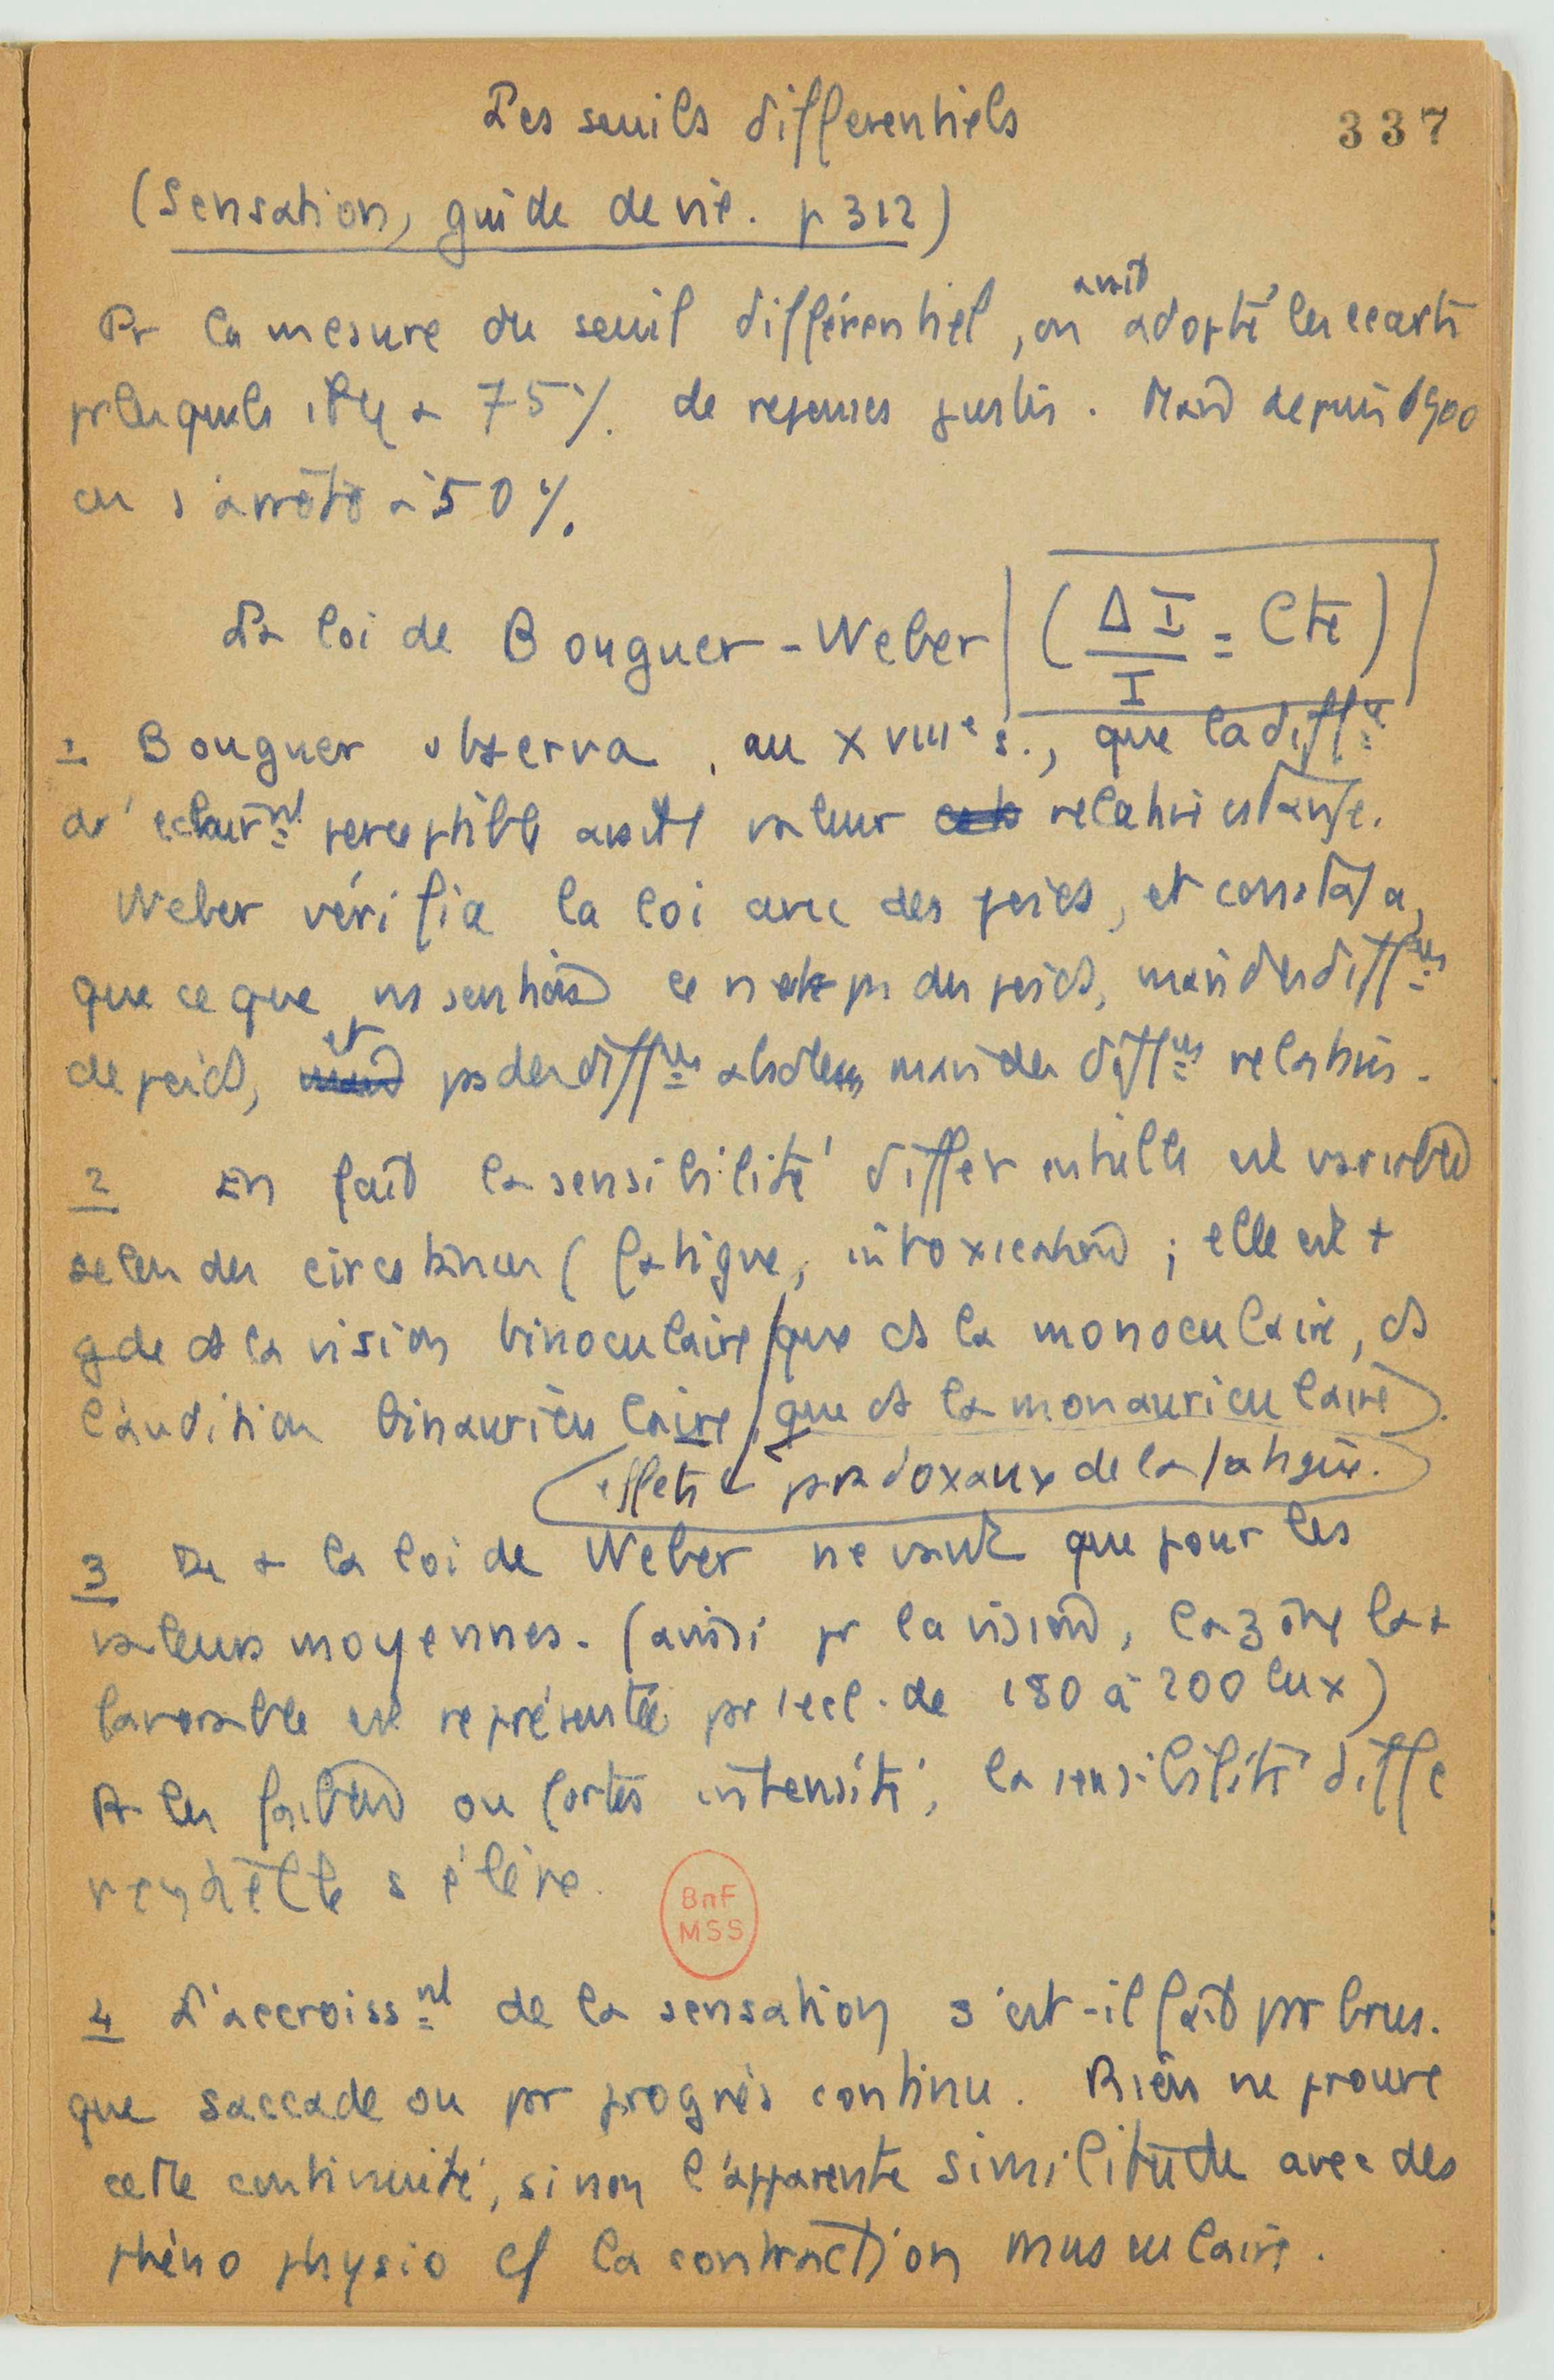 Les seuils differentiels
337
(Sensation, guide de vie. p 312)
Pr la mesure du seuil différentiel, on avait adopté les ecarts
pr lesquels il y a 75%. de reponses justes. Mais depuis 1900
on s'arrête à 50%.
La loi de Bouguer-Weber (ΔI/I = Cte)
1 Bouguer observa, au XVIIIe s., que la diffce
d'eclairnt perceptible avait valeur relative constante.
Weber vérifia la loi avec des poids, et constata,
que ce que ns sentions ce n'est ps des poids, mais des diffces
de poids, et ps des diffces absolues mais des diffces relatives.
2 En fait la sensibilité differentielle est variable
selon des circstances (fatigue, intoxication ; elle est +
gde ds la vision binoculaire que ds la monoculaire, ds
l'audition binauriculaire que ds la monauriculaire).
effets paradoxaux de la fatigue.
3 De + la loi de Weber ne vaut que pour les
valeurs moyennes. (ainsi pr la vision, la zône la +
favorable est représentée par l'ecl. de 180 à 200 lux)
A les faibles ou fortes intensités, la sensibilité diffe
rentielle s'élève.
BnF
MSS
4 L'accroissnt de la sensation s'est-il fait par brus.
que saccade ou par progrès continu. Rien ne prouve
cette continuité, sinon l'apparente similitude avec des
phéno physio cf la contraction musculaire.